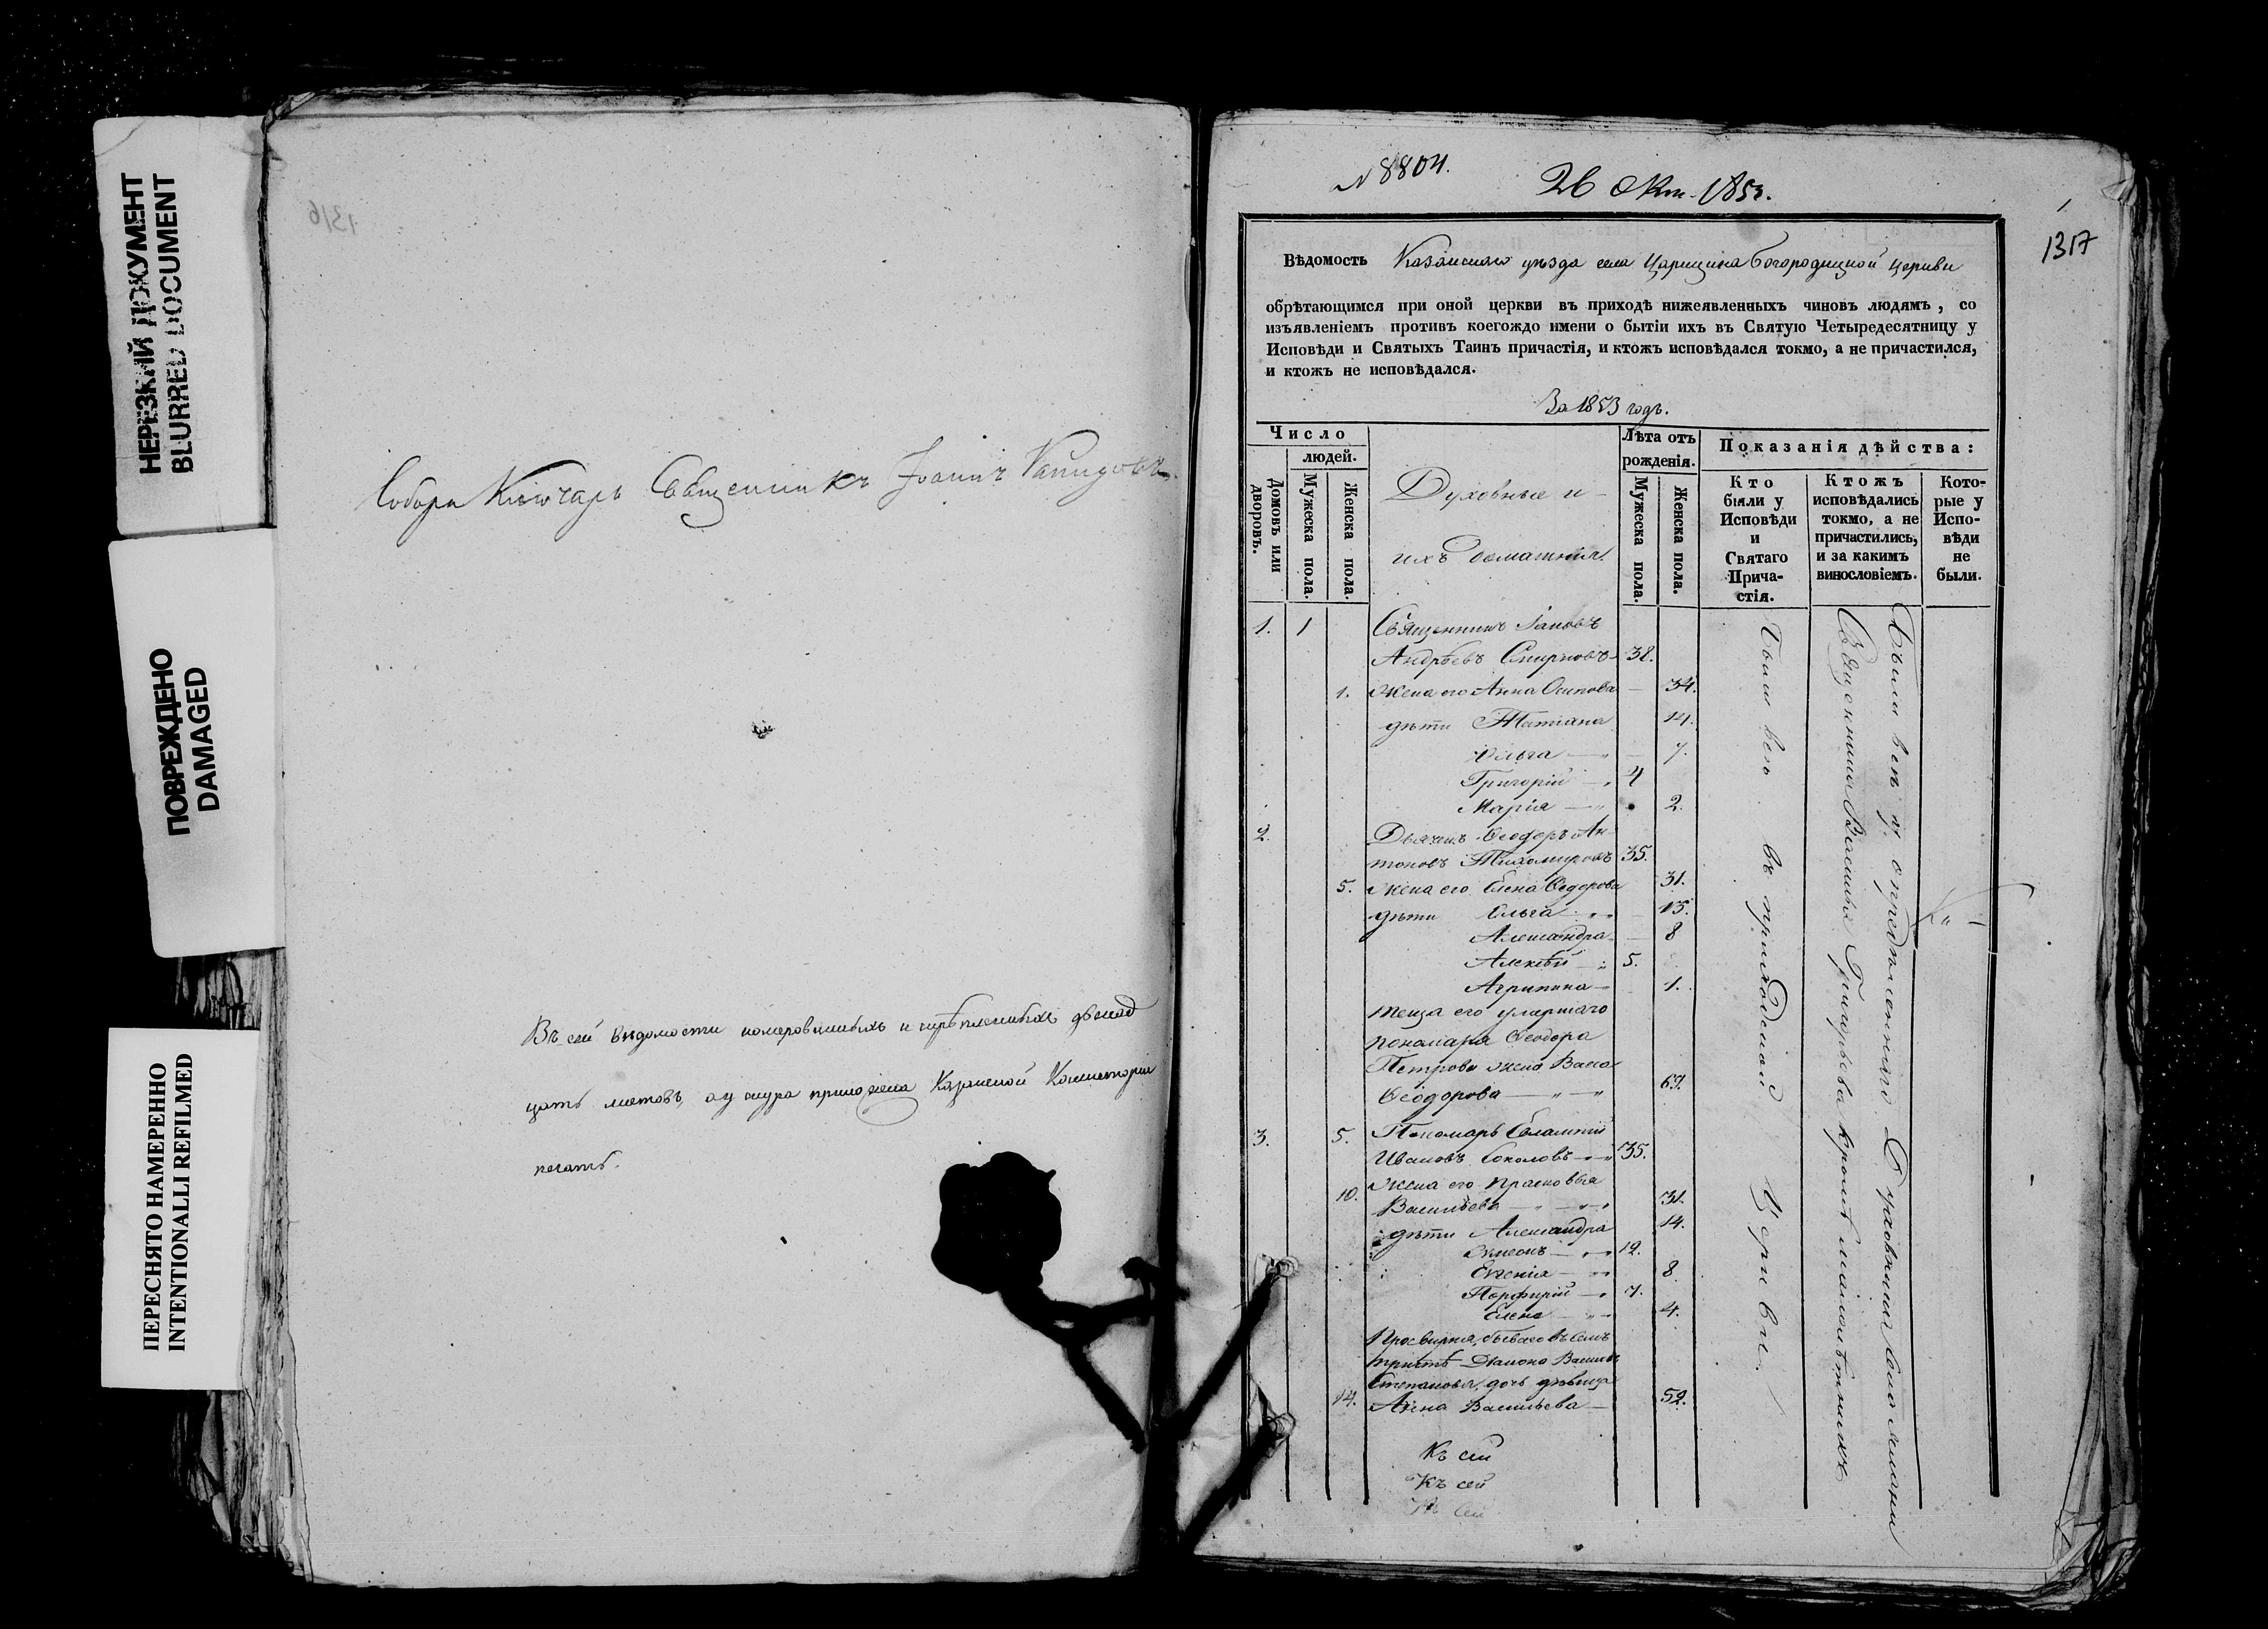 НЕРЕЗКИЙ ДОКУМЕНТ
BLURRED DOCUMENT
ПОВРЕЖДЕНО
DAMAGED
ПЕРЕСНЯТО НАМЕРЕННО
INTENTIONALLI REFILMED
1316
Собора Ключарь Священникъ Іоаннъ
Въ сей вѣдомости номерованныхъ и скрѣпленныхъ двенад
цать листовъ, а у снура приложена Казанской Консисторіи
печать.
№ 8804.
26 Окт. 1853.
1317
Вѣдомость Казанскаго уѣзда села Царицина Богородицкой церкви
обрѣтающимся при оной церкви въ приходѣ нижеявленныхъ чиновъ людямъ, со
изъявленіемъ противъ коегождо имени о бытіи ихъ въ Святую Четыредесятницу у
Исповѣди и Святыхъ Таинъ причастія, и ктожъ исповѣдался токмо, а не причастился,
и ктожъ не исповѣдался.
За 1853 годъ.
Число
людей.
Домовъ или дворовъ.
Мужеска пола.
Женска пола.
Духовные и
ихъ домашнія.
Лѣта отъ
рожденія.
Мужеска пола.
Женска пола.
Показанія дѣйства:
Кто
были у
Исповѣди
и
Святаго
Прича-
стія.
Ктожъ
исповѣдались
токмо, а не
причастились,
и за какимъ
винословіемъ.
Кото-
рые у
Испо-
вѣди
не
были.
1. 1 Священникъ Іаковъ
Андреевъ Смирновъ 38.
1. Жена его Анна Осипова 34.
дѣти Татіана 14.
Ольга 7.
Григорій 4
Марія 2.
2. Дьячекъ Ѳеодоръ Ан-
тоновъ Тихомировъ 35.
5. Жена его Елена Ѳедорова 31.
дѣти Ольга 13.
Александра 8
Алексѣй 5.
Агрипина 1.
теща его умершаго
пономаря Ѳеодора
Петрова жена Васса
Ѳеодорова 67.
3. 5. Пономарь Евлампій
Ивановъ Соколовъ 35.
10. Жена его Прасковья
Васильева 31.
дѣти Александра 14.
Симеонъ 12.
Евгенія 8
Порфирій 7.
Елена 4.
Просвирня, бывшаго въ семъ
причтѣ Діакона Василья
Степанова, дочь дѣвица
14. Анна Васильева 52.
Къ сей
Къ сей
Къ сей
Были всѣ въ приходской Церкви.
Были всѣ у опредѣленнаго Духовника Села
Священника Василья Григорьева кромѣ малолѣтнихъ